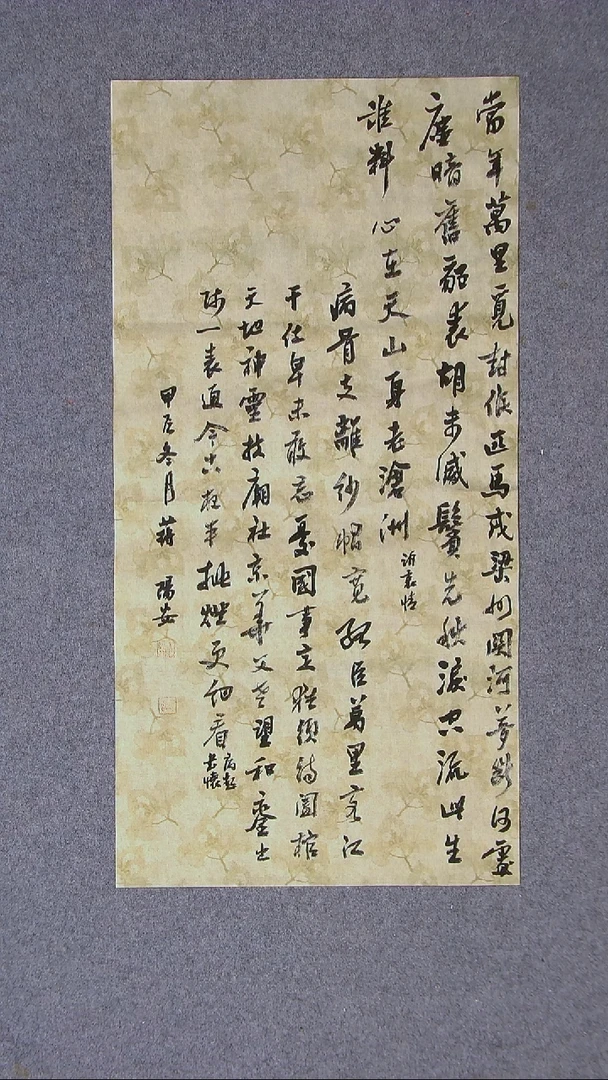 當年萬里覓封侯匹馬戍梁州關河夢斷何處
塵暗舊貂裘胡未滅鬢先秋淚空流此生
誰料心在天山身老滄洲
訴衷情
病骨支離紗帽寬孤臣萬里客江
干位卑未敢忘憂國事定猶須待闔棺
天地神靈扶廟社京華父老望和鑾出
師一表通今古夜半挑燈更細看
病起
書懷
甲辰冬月蔣陽安